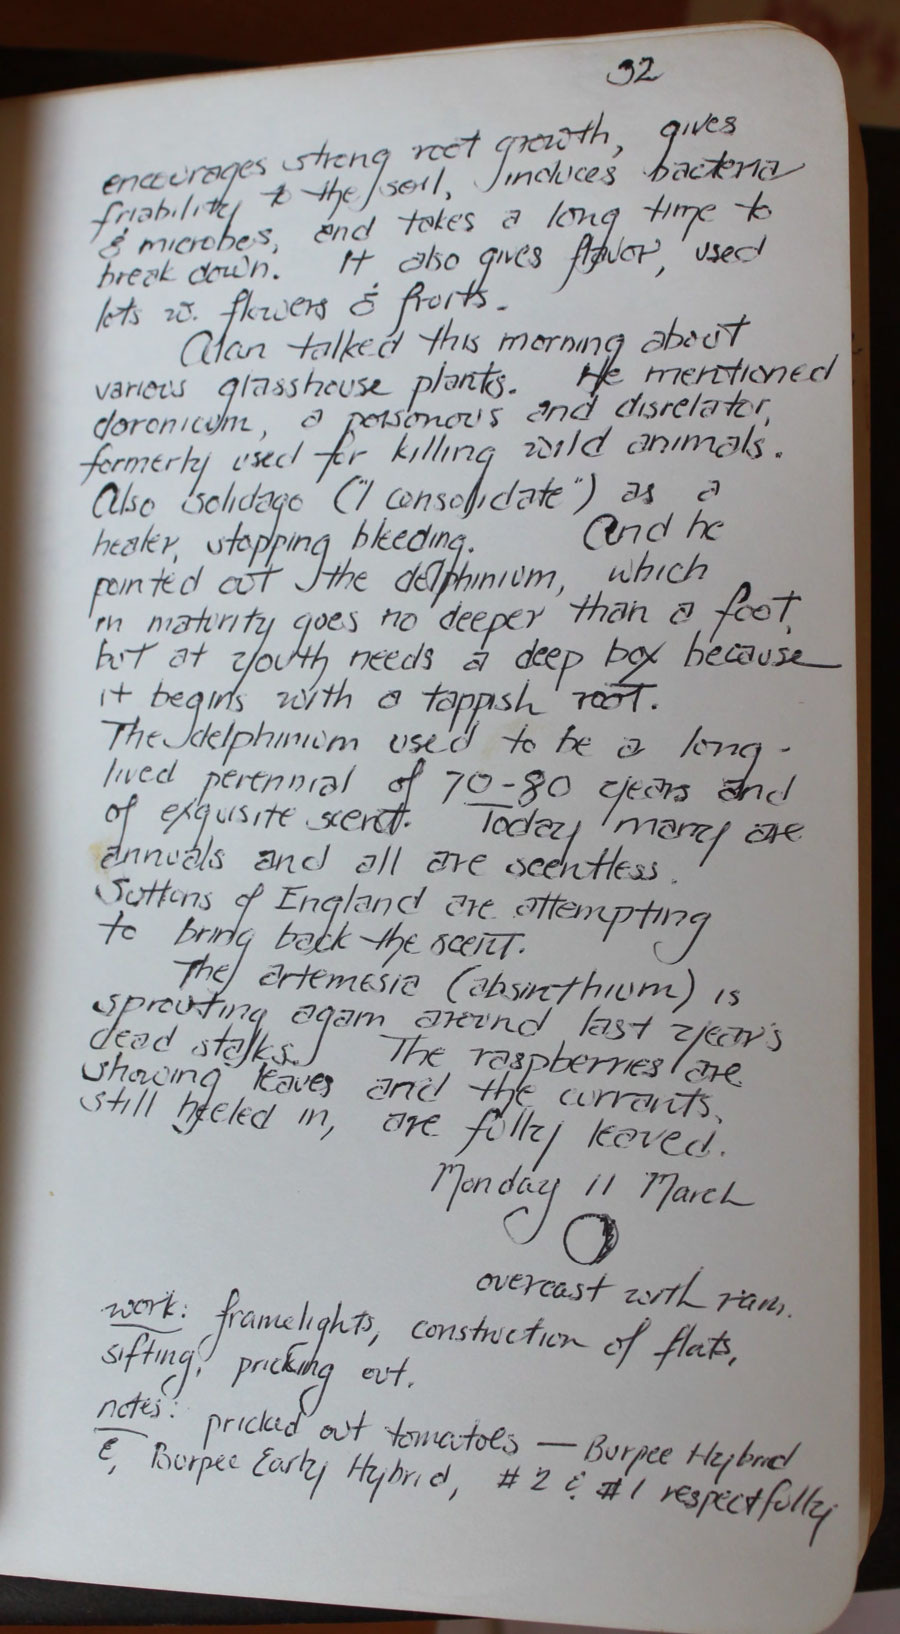 32
encourages strong root growth, gives
friability to the soil, induces bacteria
& microbes, and takes a long time to
break down. It also gives flavor, used
lots w. flowers & fruits.
Alan talked this morning about
various glasshouse plants. He mentioned
doronicum, a poisonous and disrelator,
formerly used for killing wild animals.
Also solidago ("I consolidate") as a
healer, stopping bleeding. And he
pointed out the delphinium, which
in maturity goes no deeper than a foot,
but at youth needs a deep box because
it begins with a tappish root.
The delphinium used to be a long-
lived perennial of 70-80 years and
of exquisite scent. Today many are
annuals and all are scentless.
Suttons of England are attempting
to bring back the scent.
The artemesia (absinthium) is
sprouting again around last year's
dead stalks. The raspberries are
showing leaves and the currants,
still heeled in, are fully leaved.
Monday 11 March
overcast with rain.
work: framelights, construction of flats,
sifting, pricking out.
notes: pricked out tomatoes — Burpee Hybrid
&, Burpee Early Hybrid, #2 & #1 respectfully